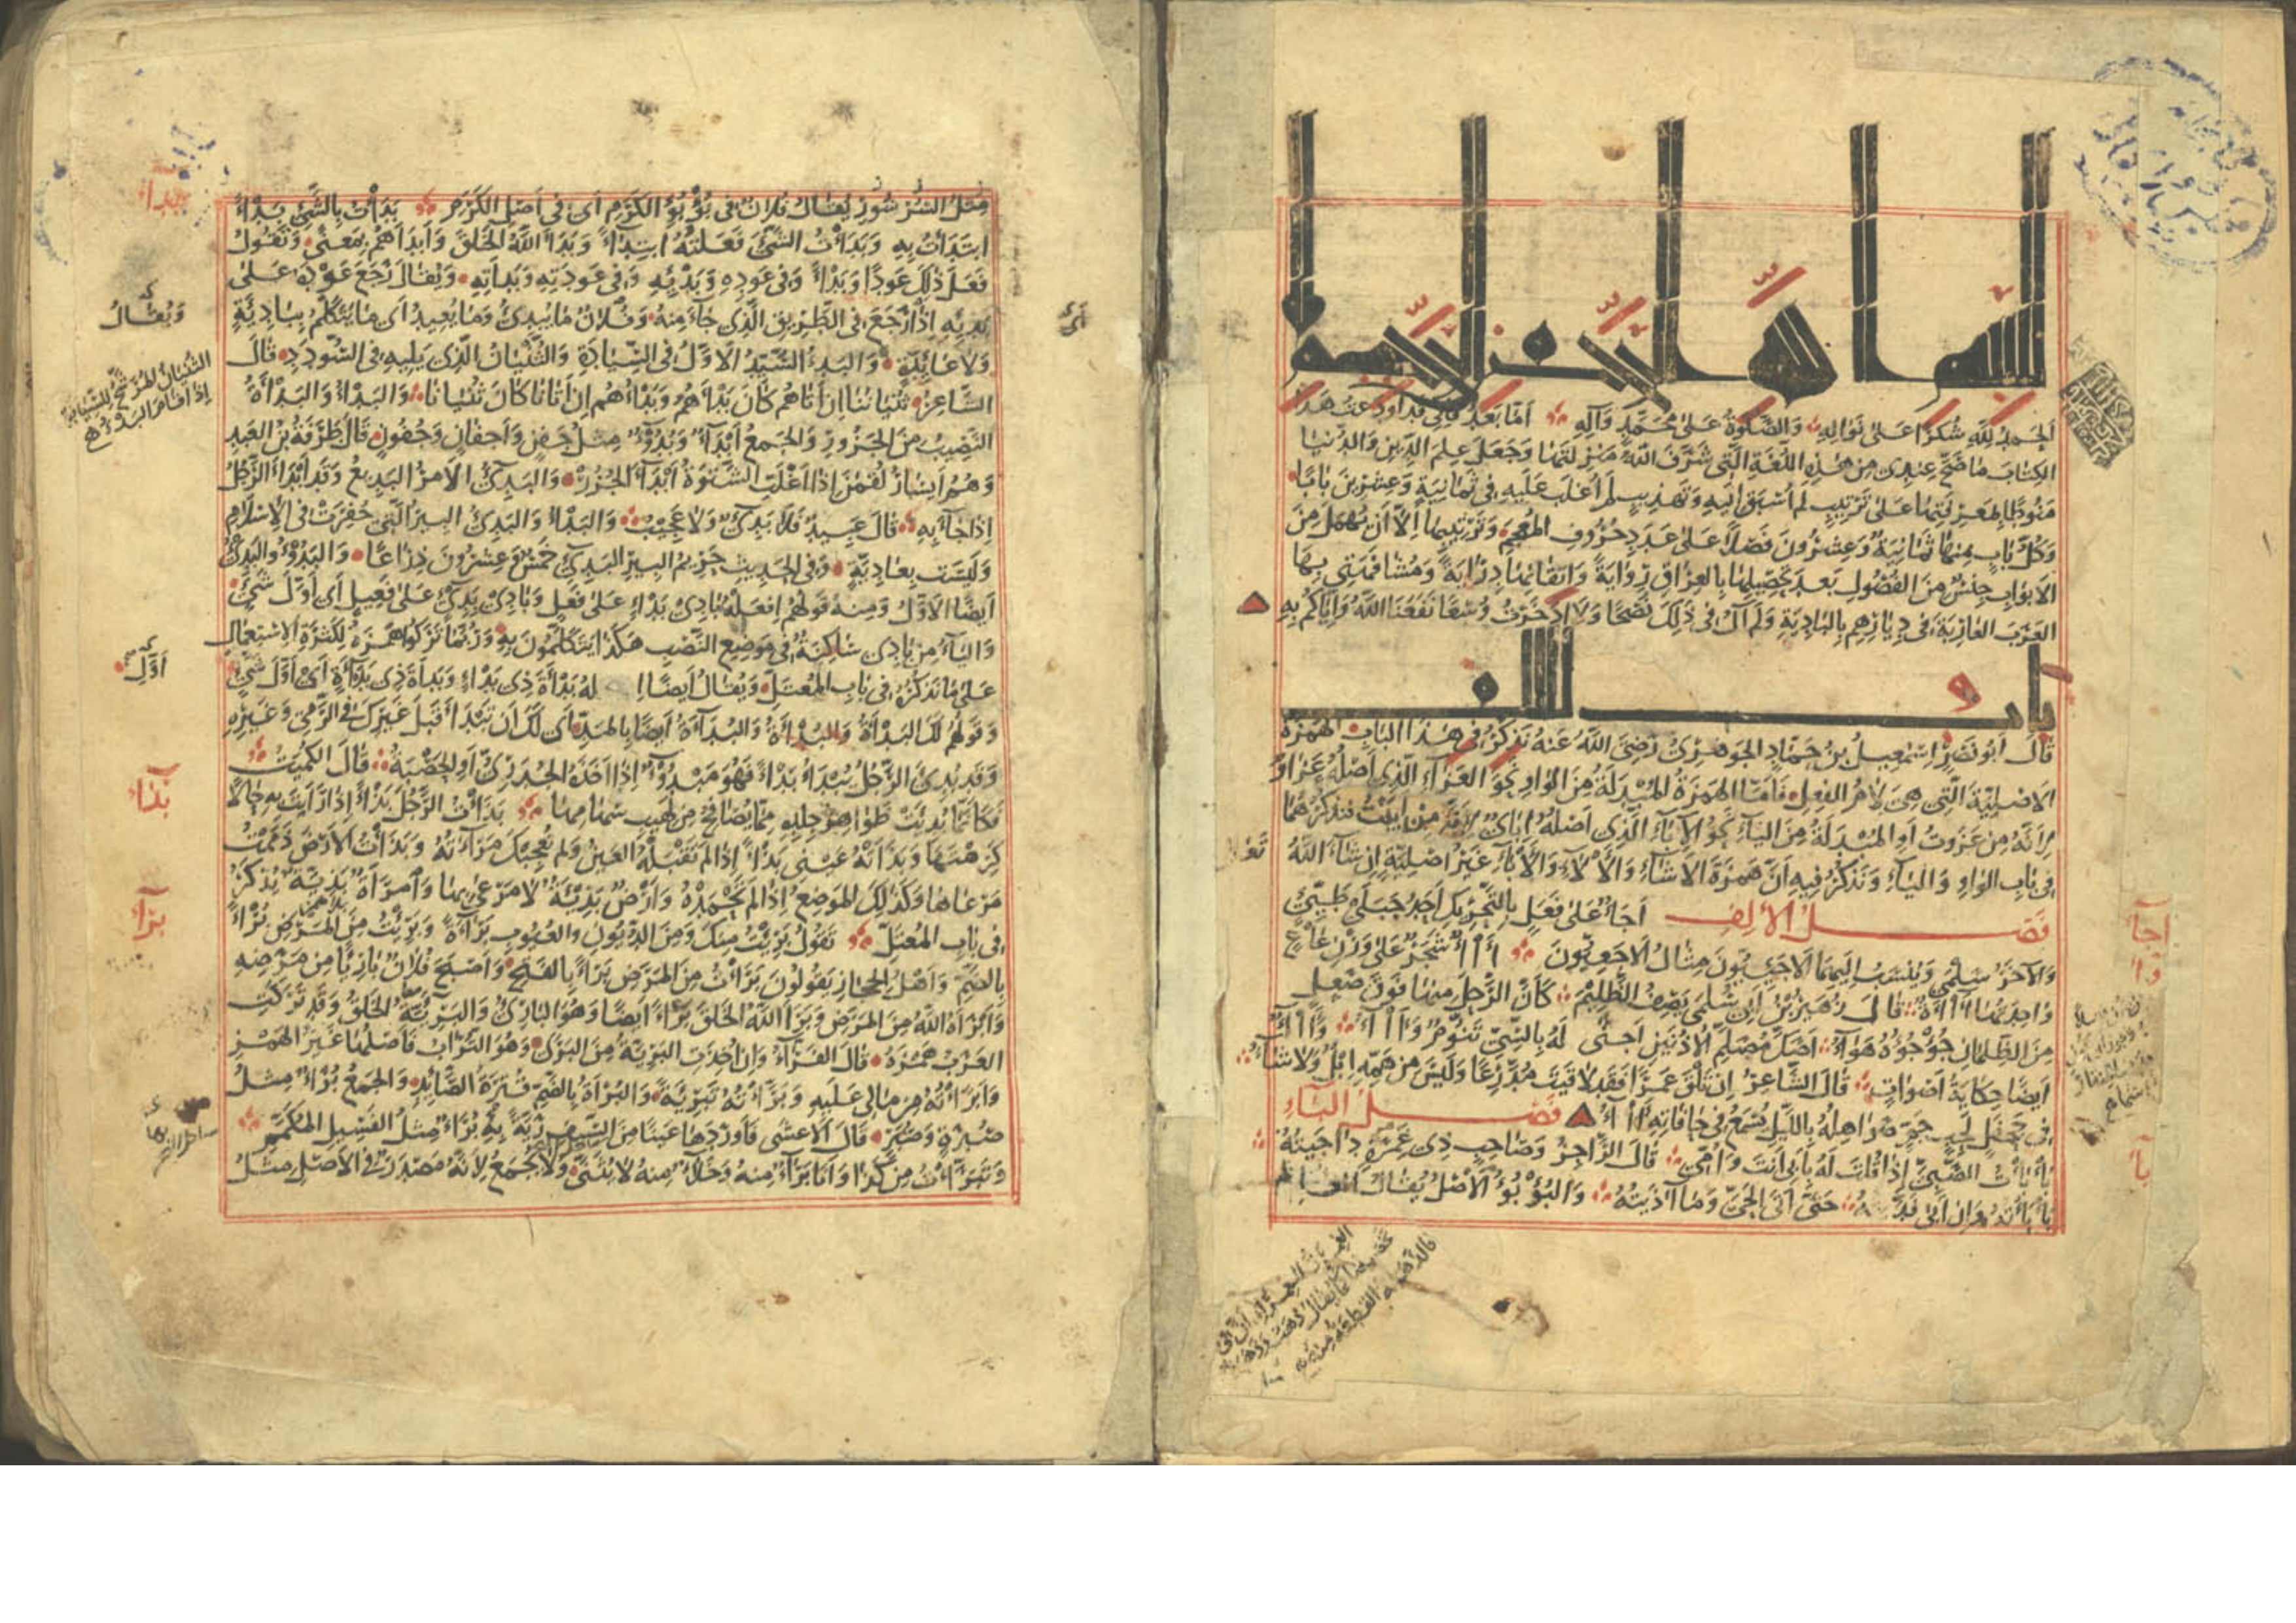 بسم الله الرحمن الرحيم
الحمد لله شكرا على نواله والصلوة على محمد وآله أما بعد فاني قد اودعت هذا
الكتاب ما صح عندي من هذه اللغة التي شرف الله منزلتها وجعل علم الدين والدنيا
منوطا بمعرفتها على ترتيب لم اسبق اليه وتهذيب لم اغلب عليه في ثمانية وعشرين بابا
وكل باب منها ثمانية وعشرون فصلا على عدد حروف المعجم وترتيبها الا ان يهمل من
الابواب جنس من الفصول بعد تحصيلها بالعراق رواية واتقانها دراية ومشافهتي بها
العرب العاربة في ديارهم بالبادية ولم آل في ذلك نصحا ولا ادخرت وسعا نفعنا الله واياكم به
باب الالف
قال ابو نصر اسمعيل بن حماد الجوهري رضي الله عنه نذكر في هذا الباب الهمزة
الاصلية التي هي لام الفعل فاما الهمزة المبدلة من الواو نحو العزاء الذي اصله عزاو
لانه من عزوت او المبدلة من الياء نحو الاباء الذي اصله اباي لانه من ابيت فنذكرهما
في باب الواو والياء ونذكر فيه ان همزة الاشاء والالاء والاباء غير اصلية ان شاء الله
تعالى
فصل الالف اجاء على فعل بالتحريك احد جبلي طيئ
والآخر سلمى وينسب اليهما الاجئيون مثال الاجعيون آاء شجر على وزن عاع
واحدتها آاءة قال زهير بن ابي سلمى يصف الظليم كان الرجل منها فوق صعل
من الظلمان جؤجؤه هواء اصك مصلم الاذنين اجنى له بالسي تنوم وآاء وآاء
ايضا حكاية اصوات قال الشاعر ان تلق عمرا فقد لاقيت مدرعا وليس من همه ابل ولا شاء
في جحفل لجب جم صواهله بالليل يسمع في حافاته آاء فصل الباء
بأبأت الصبي اذا قلت له بابي انت وامي قال الراجز وصاحب ذي غمرة داجيته
بأبأته وان ابى فديته حتى اتى الحي وما آذيته والبؤبؤ الاصل يقال
اجأ
بأبأ
مثل السرسور يقال فلان في بؤبؤ الكرم اي في اصل الكرم بدأت بالشئ بدءا
ابتدأت به وبدأت الشئ فعلته ابتداء وبدأ الله الخلق وابدأهم بمعنى وتقول
فعل ذلك عودا وبدءا وفي عوده وبدئه وفي عودته وبدأته ويقال رجع عوده على
بدئه اذا رجع في الطريق الذي جاء منه وفلان ما يبدئ وما يعيد اي ما يتكلم ببادئة
ولا عائدة والبدء السيد الاول في السيادة والثنيان الذي يليه في السودد قال
الشاعر ثنياننا ان اتاهم كان بدأهم وبدؤهم ان اتانا كان ثنيانا والبدء والبدأة
النصيب من الجزور والجمع ابداء وبدوء مثل جفن واجفان وجفون قال طرفة بن العبد
وهم ايسار لقمن اذا اغلت الشتوة ابداء الجزر والبدئ الامر البديع وقد ابدأ الرجل
اذا جاء به قال عبيد فلا بدئ ولا عجيب والبدء والبدئ البير التي حفرت في الاسلام
وليست بعادية وفي الحديث حريم البير البدئ خمس وعشرون ذراعا والبدء والبدئ
ايضا الاول ومنه قولهم افعله بادي بدء على فعل وبادي بدئ على فعيل اي اول شئ
والياء من بادي ساكنة في موضع النصب هكذا يتكلمون به وربما تركوا همزه لكثرة الاستعمال
على ما نذكره في باب المعتل ويقال ايضا له بدأة ذي بدء وبدأة ذي بداءة اي اول شئ
وقولهم لك البدأة والبدأة والبداءة ايضا بالمد اي لك ان تبدأ قبل غيرك في الرمي وغيره
وقد بدئ الرجل يبدأ بدءا فهو مبدوء اذا اخذه الجدري او الحصبة قال الكميت
فكانما بدئت ظواهر جلده مما يصافح من لهيب سهامها بذأت الرجل بذءا اذا رايت به حالا
كرهتها وبذأته عيني بذءا اذا لم تقبله العين ولم تعجبك مرآته وبذأت الارض ذممت
مرعاها وكذلك الموضع اذا لم تحمده وارض بذيئة لا مرعى بها وامرأة بذية يذكر
في باب المعتل تقول برئت منك ومن الديون والعيوب براءة وبرئت من المرض برءا
بالضم واهل الحجاز يقولون برأت من المرض برءا بالفتح واصبح فلان بارئا من مرضه
وابرأه الله من المرض وبرأ الله الخلق برءا ايضا وهو البارئ والبرية الخلق وقد تركت
العرب همزه قال الفراء وان اخذت البرية من البرى وهو التراب فاصلها غير الهمز
وابرأته من مالي عليه وبرأته تبرئة والبرأة بالضم قترة الصائد والجمع برأ مثل
صبرة وصبر قال الاعشى فاوردها عينا من السيف رية به برأ مثل الفسيل المكمم
وتبرأت من كذا وانا براء منه وخلاء منه لا يثنى ولا يجمع لانه مصدر في الاصل مثل
بدأ
ويقال
الثنيان المرشح للسيادة
اول
بذأ
برأ
اي